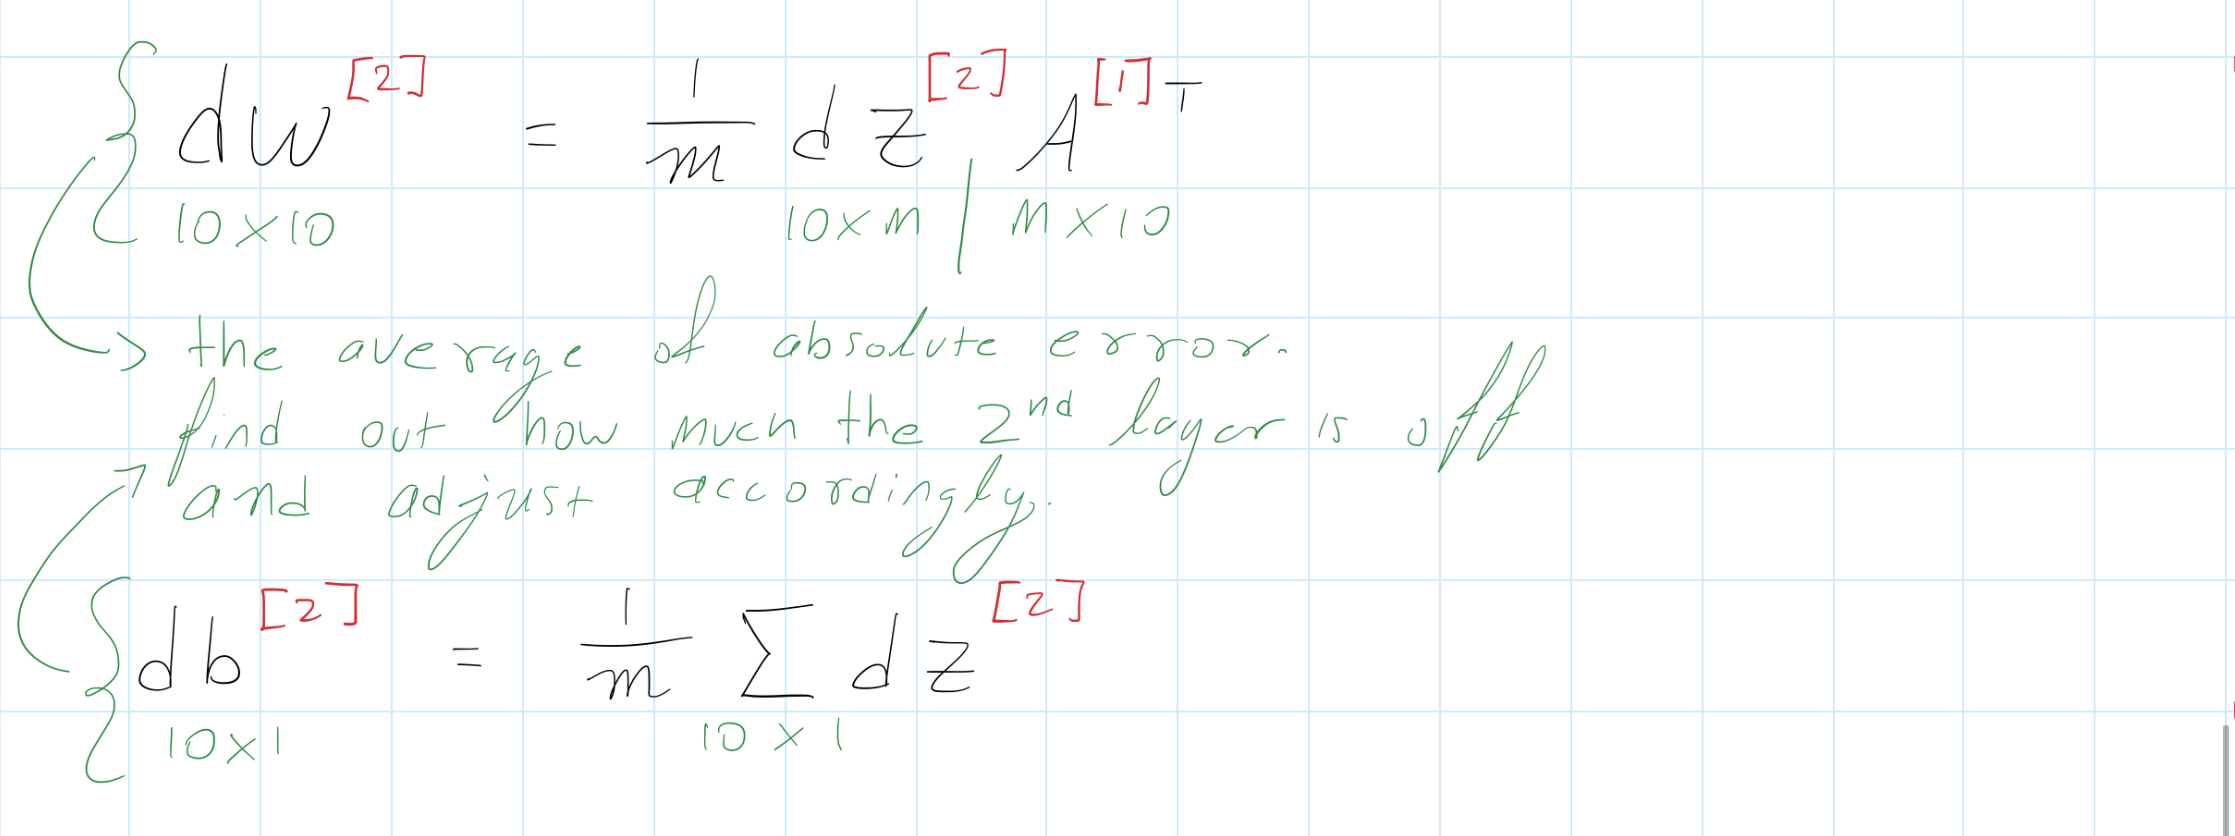 dw^[2] = 1/m dz^[2] A^[1]T
10×10 10×m | m×10
the average of absolute error.
find out how much the 2nd layer is off
and adjust accordingly.
db^[2] = 1/m Σ dz^[2]
10×1 10×1